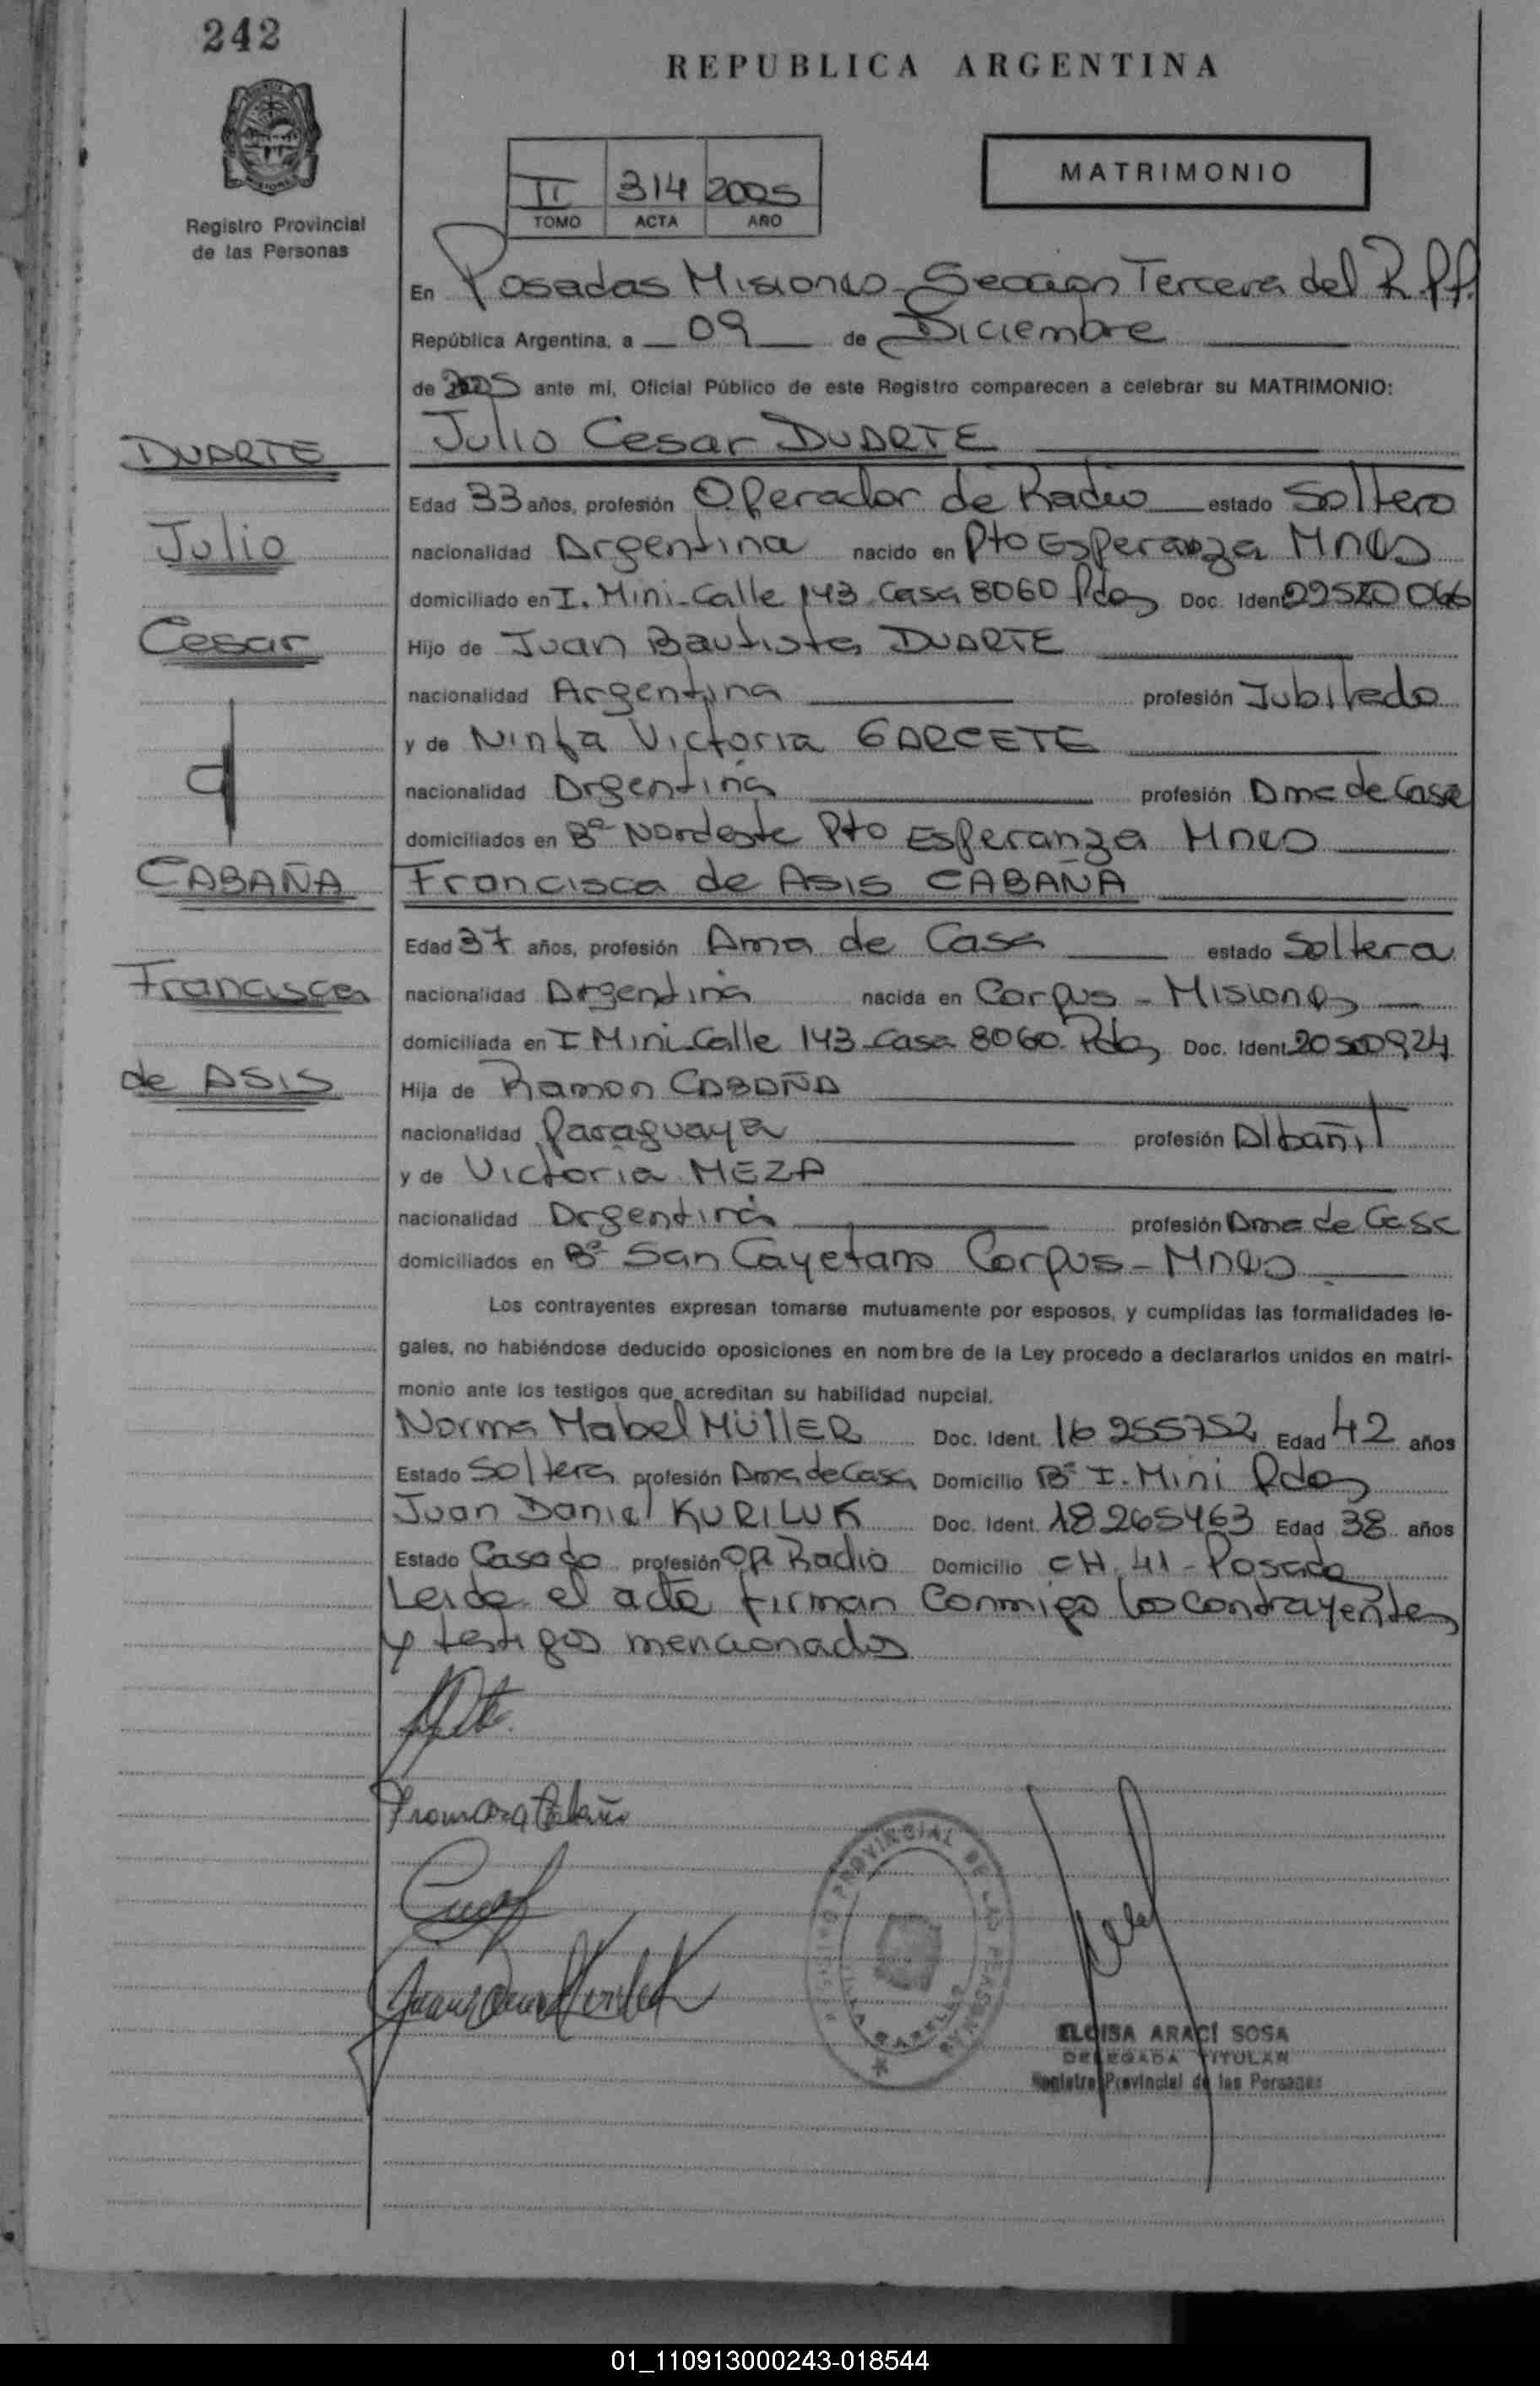 242
REPUBLICA ARGENTINA
Registro Provincial
de las Personas
II 314 2005
TOMO ACTA AÑO
MATRIMONIO
En Posadas Misiones Seccion Tercera del R.P.P.
República Argentina, a 09 de Diciembre
de 2005 ante mí, Oficial Público de este Registro comparecen a celebrar su MATRIMONIO:
DUARTE
Julio
Cesar
Julio Cesar DUARTE
Edad 33 años, profesión Operador de Radio estado Soltero
nacionalidad Argentina nacido en Pto Esperanza Mnes
domiciliado en I. Mini-Calle 143 Casa 8060 Pdas Doc. Ident.
Hijo de Juan Bautista DUARTE
nacionalidad Argentina profesión Jubilado
y de Ninfa Victoria GARCETE
nacionalidad Argentina profesión Ama de Casa
domiciliados en Bº Nordeste Pto Esperanza Mnes
CABAÑA
Francisca
de ASIS
Francisca de Asis CABAÑA
Edad 37 años, profesión Ama de Casa estado Soltera
nacionalidad Argentina nacida en Corpus - Misiones
domiciliada en I Mini-Calle 143 Casa 8060 Pdas Doc. Ident.
Hija de Ramon CABAÑA
nacionalidad Paraguaya profesión Albañil
y de Victoria MEZA
nacionalidad Argentina profesión Ama de Casa
domiciliados en Bº San Cayetano Corpus - Mnes
Los contrayentes expresan tomarse mutuamente por esposos, y cumplidas las formalidades le-
gales, no habiéndose deducido oposiciones en nombre de la Ley procedo a declararlos unidos en matri-
monio ante los testigos que acreditan su habilidad nupcial.
Norma Mabel MÜLLER Doc. Ident. 16 255752 Edad 42 años
Estado Soltera profesión Ama de Casa Domicilio Bº I. Mini Pdas
Juan Daniel KURILUK Doc. Ident. 18265463 Edad 38 años
Estado Casado profesión Op Radio Domicilio CH. 41 - Posadas
Leida el acta firman conmigo los contrayentes
y testigos mencionados
REGISTRO PROVINCIAL DE LAS PERSONAS
ELOISA ARACI SOSA
DELEGADA TITULAR
Registro Provincial de las Personas
01_110913000243-018544